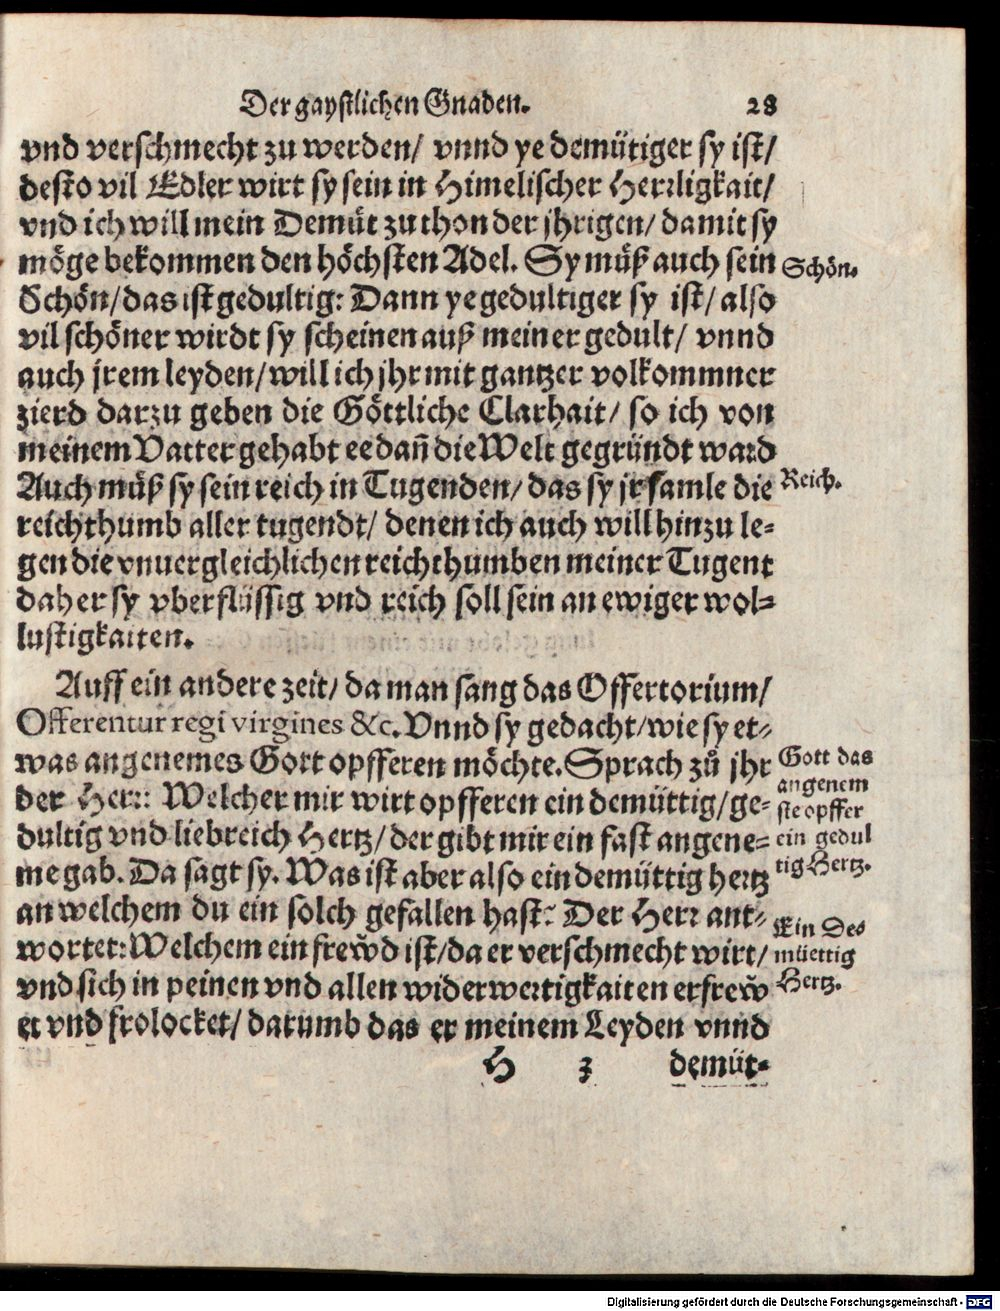 Der gaystlichen Gnaden. 28
vnd verschmecht zu werden/ vnnd ye demütiger sy ist/
desto vil Edler wirt sy sein in Himelischer Herrligkait/
vnd ich will mein Demüt zu thon der jhrigen/ damit sy
möge bekommen den höchsten Adel. Sy müß auch sein
Schön.
Schön/ das ist gedultig: Dann ye gedultiger sy ist/ also
vil schöner wirdt sy scheinen auß meiner gedult/ vnnd
auch jrem leyden/ will ich jhr mit gantzer volkommner
zierd darzu geben die Göttliche Clarhait/ so ich von
meinem Vatter gehabt ee dañ die Welt gegründt ward
Auch müß sy sein reich in Tugenden/ das sy jr samle die
Reich.
reichthumb aller tugendt/ denen ich auch will hinzu le-
gen die vnuergleichlichen reichthumben meiner Tugent
daher sy vberflüssig vnd reich soll sein an ewiger wol-
lustigkaiten.
Auff ein andere zeit/ da man sang das Offertorium/
Offerentur regi virgines &c. Vnnd sy gedacht/ wie sy et-
was angenemes Gott opfferen möchte. Sprach zů jhr
der Herr: Welcher mir wirt opfferen ein demüttig/ ge-
dultig vnd liebreich Hertz/ der gibt mir ein fast angene-
me gab. Da sagt sy. Was ist aber also ein demüttig hertz
Gott das
angenem
ste opffer
ein gedul
tig Hertz.
an welchem du ein solch gefallen hast? Der Herr ant-
wortet: Welchem ein frewd ist/ da er verschmecht wirt/
vnd sich in peinen vnd allen widerwertigkaiten erfrew
et vnd frolocket/ darumb das er meinem Leyden vnnd
Ein De-
müettig
Hertz.
H 3 demüt-
Digitalisierung gefördert durch die Deutsche Forschungsgemeinschaft - DFG